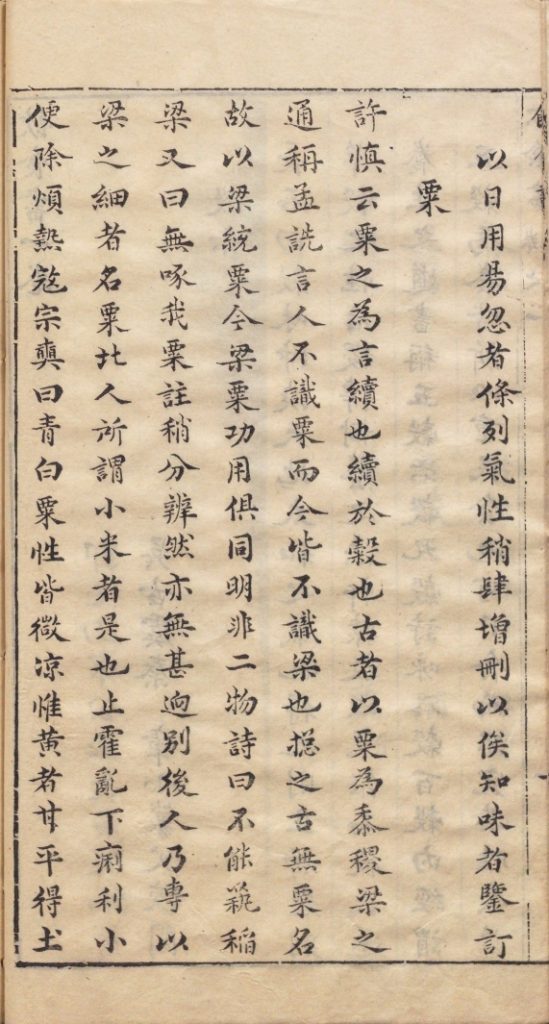 以日用易忽者條列氣性稍肆增刪以俟知味者鑒訂
粟
許慎云粟之為言續也續於穀也古者以粟為黍稷梁之
通稱孟詵言人不識粟而今皆不識梁也揔之古無粟名
故以梁統粟今梁粟功用俱同明非二物詩曰不能蓺稻
梁又曰無啄我粟註稍分辨然亦無甚逈別後人乃專以
梁之細者名粟北人所謂小米者是也止霍亂下痢利小
便除煩熱宼宗奭曰青白粟性皆微凉惟黄者甘平得土